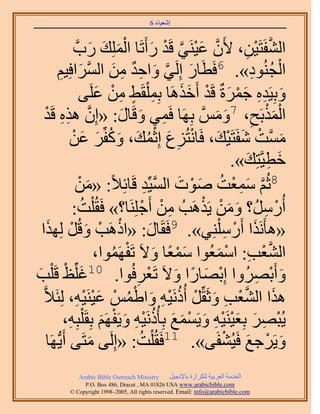 إشعياء 6
الشَّفَتَيْنِ، لأَنَّ عَيْنَيَّ قَدْ رَأَتَا الْمَلِكَ رَبَّ
الْجُنُودِ». 6فَطَارَ إِلَيَّ وَاحِدٌ مِنَ السَّرَافِيمِ
وَبِيَدِهِ جَمْرَةٌ قَدْ أَخَذَهَا بِمِلْقَطٍ مِنْ عَلَى
الْمَذْبَحِ، 7وَمَسَّ بِهَا فَمِي وَقَالَ: «إِنَّ هذِهِ قَدْ
مَسَّتْ شَفَتَيْكَ، فَانْتُزِعَ إِثْمُكَ، وَكُفِّرَ عَنْ
خَطِيَّتِكَ».
8ثُمَّ سَمِعْتُ صَوْتَ السَّيِّدِ قَائِلاً: «مَنْ
أُرْسِلُ؟ وَمَنْ يَذْهَبُ مِنْ أَجْلِنَا؟» فَقُلْتُ:
«هأَنَذَا أَرْسِلْنِي». 9فَقَالَ: «اذْهَبْ وَقُلْ لِهذَا
الشَّعْبِ: اسْمَعُوا سَمْعًا وَلاَ تَفْهَمُوا،
وَأَبْصِرُوا إِبْصَارًا وَلاَ تَعْرِفُوا. 10غَلِّظْ قَلْبَ
هذَا الشَّعْبِ وَثَقِّلْ أُذُنَيْهِ وَاطْمُسْ عَيْنَيْهِ، لِئَلاَّ
يُبْصِرَ بِعَيْنَيْهِ وَيَسْمَعَ بِأُذُنَيْهِ وَيَفْهَمَ بِقَلْبِهِ،
وَيَرْجِعَ فَيُشْفَى». 11فَقُلْتُ: «إِلَى مَتَى أَيُّهَا
Arabic Bible Outreach Ministry الخدمة العربية للكرازة بالإنجيل
P.O. Box 486, Dracut , MA 01826 USA www.arabicbible.com
Copyright © 1998-2005, All rights reserved. Email: info@arabicbible.com